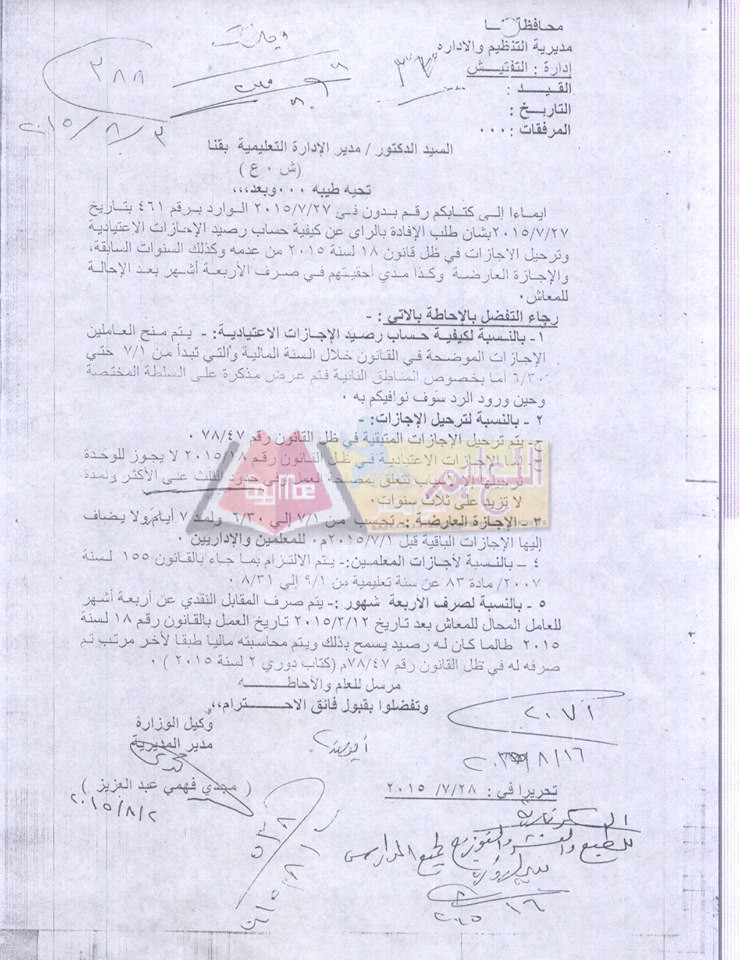 محافظة قنا
مديرية التنظيم والاداره
إدارة : التفتيش
القيد :
التاريخ :
المرفقات : ٠٠٠
٣٨٨
٢٠١٥/٨/٣
السيد الدكتور / مدير الإدارة التعليمية بقنا
(ش ٠ ع)
تحيه طيبه ٠٠٠ وبعد،،،
ايماءا إلى كتابكم رقم بدون فى ٢٠١٥/٧/٢٧ الوارد برقم ٤٦١ بتاريخ
٢٠١٥/٧/٢٧ بشان طلب الإفادة بالراى عن كيفية حساب رصيد الإجازات الاعتيادية
وترحيل الاجازات في ظل قانون ١٨ لسنة ٢٠١٥ من عدمه وكذلك السنوات السابقة،
والإجازة العارضة وكذا مدي أحقيتهم في صرف الأربعة أشهر بعد الإحالة
للمعاش٠
رجاء التفضل بالإحاطة بالاتي : -
١ - بالنسبة لكيفية حساب رصيد الإجازات الاعتيادية: - يتم منح العاملين
الإجازات الموضحة في القانون خلال السنة المالية والتي تبدأ من ٧/١ حتي
٦/٣٠ اما بخصوص المناطق النائية فتم عرض مذكرة على السلطة المختصة
وحين ورود الرد سوف نوافيكم به ٠
٢ - بالنسبة لترحيل الإجازات:
ج- يتم ترحيل الإجازات المتبقية في ظل القانون رقم ٧٨/٤٧
الإجازات الاعتيادية في ظل القانون رقم ٢٠١٥/١٨ لا يجوز للوحدة
تتعلق بمصلحة العمل وفي حدود الثلث على الأكثر ولمدة
لا تزيد على ثلاث سنوات٠
٣ - الإجازة العارضة :- تحسب من ٧/١ إلى ٦/٣٠ ولمد ٧ أيام ولا يضاف
إليها الإجازات الباقية قبل ٢٠١٥/٧/١م٠ للمعلمين والإداريين ٠
٤ – بالنسبة لأجازات المعلمين:- يتم الالتزام بما جاء بالقانون ١٥٥ لسنة
٢٠٠٧/ مادة ٨٣ عن سنة تعليمية من ٩/١ إلى ٨/٣١٠
٥ - بالنسبة لصرف الأربعة شهور :- يتم صرف المقابل النقدي عن أربعة أشهر
للعامل المحال للمعاش بعد تاريخ ٢٠١٥/٣/١٢ تاريخ العمل بالقانون رقم ١٨ لسنة
٢٠١٥ طالما كان له رصيد يسمح بذلك ويتم محاسبته ماليا طبقا لأخر مرتب تم
صرفه له في ظل القانون رقم ٧٨/٤٧م (كتاب دوري ٢ لسنة ٢٠١٥ ) ٠
مرسل للعلم والأحاطه
وتفضلوا بقبول فائق الاحترام،،
وكيل الوزارة
مدير المديرية
( مجدي فهمي عبد العزيز )
٢٠١٥/٨/٢
٢٠٧١
٨/١٦
تحريرا في : ٢٠١٥ /٧/٢٨
٥٣٨
السكرتارية
للطبع والنشر والتوزيع لجميع المدارس
٨/١٦
٢٠١٥
التعليم